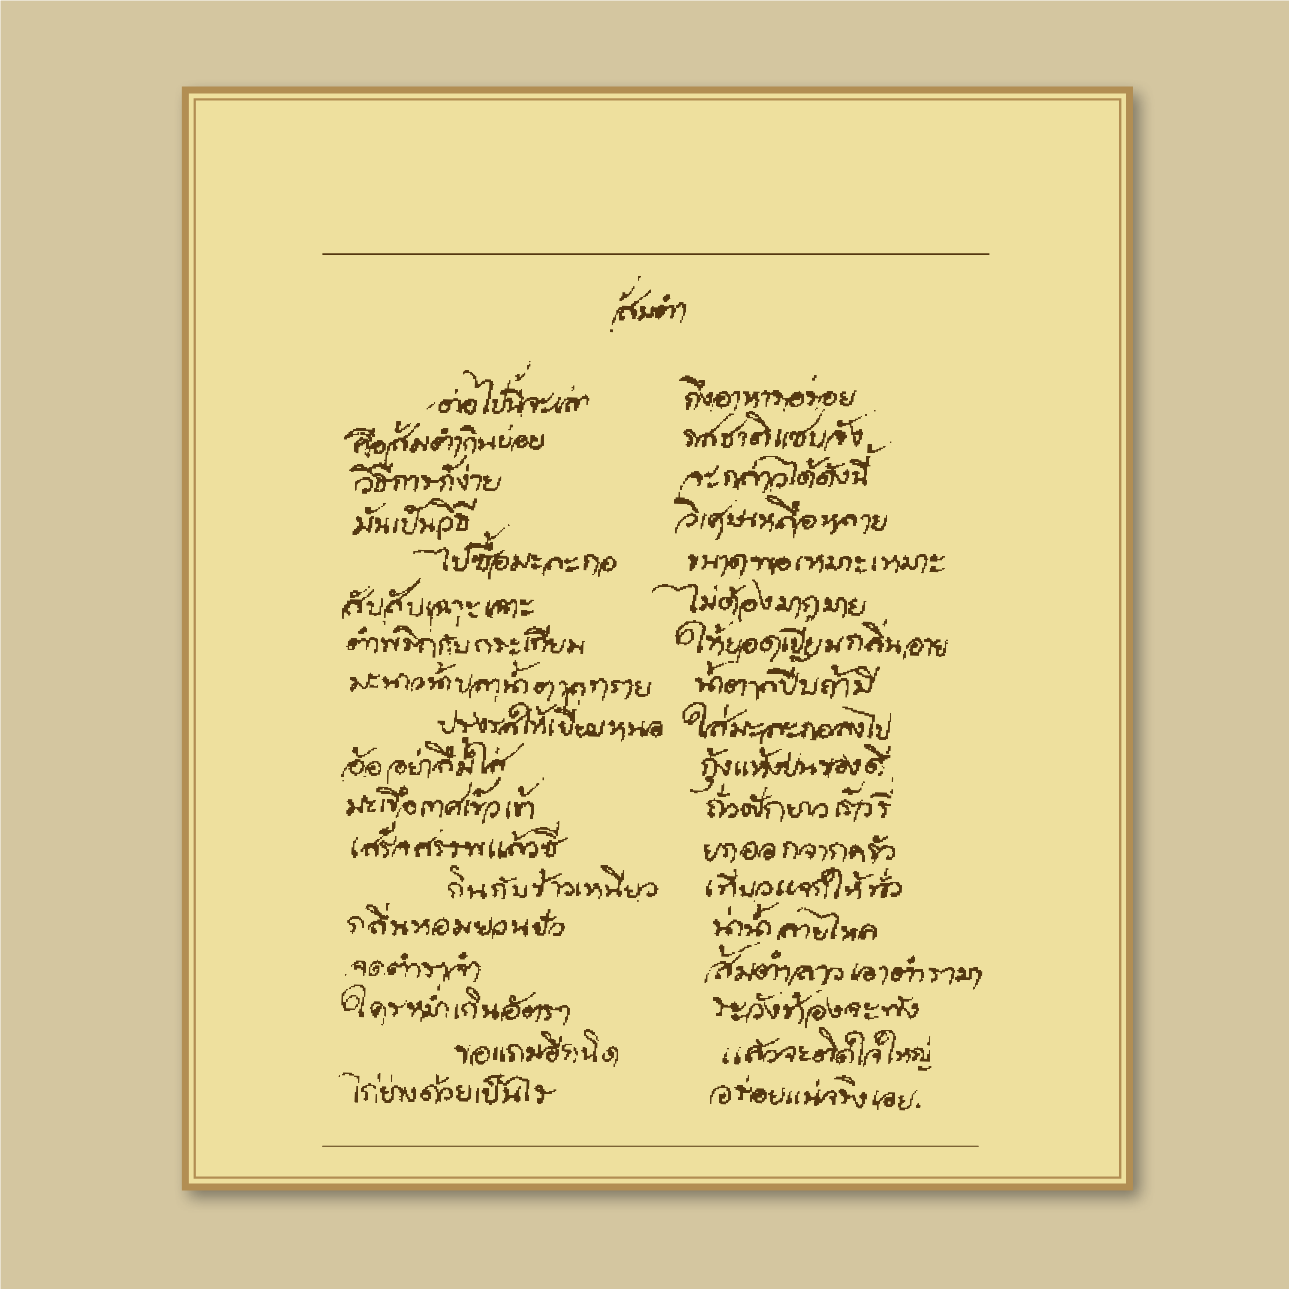 ส้มตำ
ต่อไปนี้จะเล่า ถึงอาหารอร่อย
คือส้มตำกินบ่อย รสชาติแซบจัง
วิธีการก็ง่าย จะกล่าวได้ดังนี้
มันเป็นวิธี วิเศษเหลือหลาย
ไปซื้อมะละกอ ขนาดพอเหมาะเหมาะ
สับสับเฉาะเฉาะ ไม่ต้องมากมาย
ตำพริกกับกระเทียม ให้ยอดเยี่ยมกลิ่นอาย
มะนาวน้ำปลาน้ำตาลทราย น้ำตาลปี๊บถ้ามี
ปรุงรสให้เยี่ยมหนอ ใส่มะละกอลงไป
อ้อ อย่าลืมใส่ กุ้งแห้งป่นของดี
มะเขือเทศเร็วเข้า ถั่วฝักยาวเร็วรี่
เสร็จสรรพแล้วซี ยกออกจากครัว
กินกับข้าวเหนียว เที่ยวแจกให้ทั่ว
กลิ่นหอมยวนยั่ว น่าน้ำลายไหล
จดตำราจำ ส้มตำลาวเอาตำรามา
ใครหม่ำเกินอัตรา ระวังท้องจะพัง
ขอแถมอีกนิด แล้วจะติดใจใหญ่
ไก่ย่างด้วยเป็นไร อร่อยแน่จริงเอย.